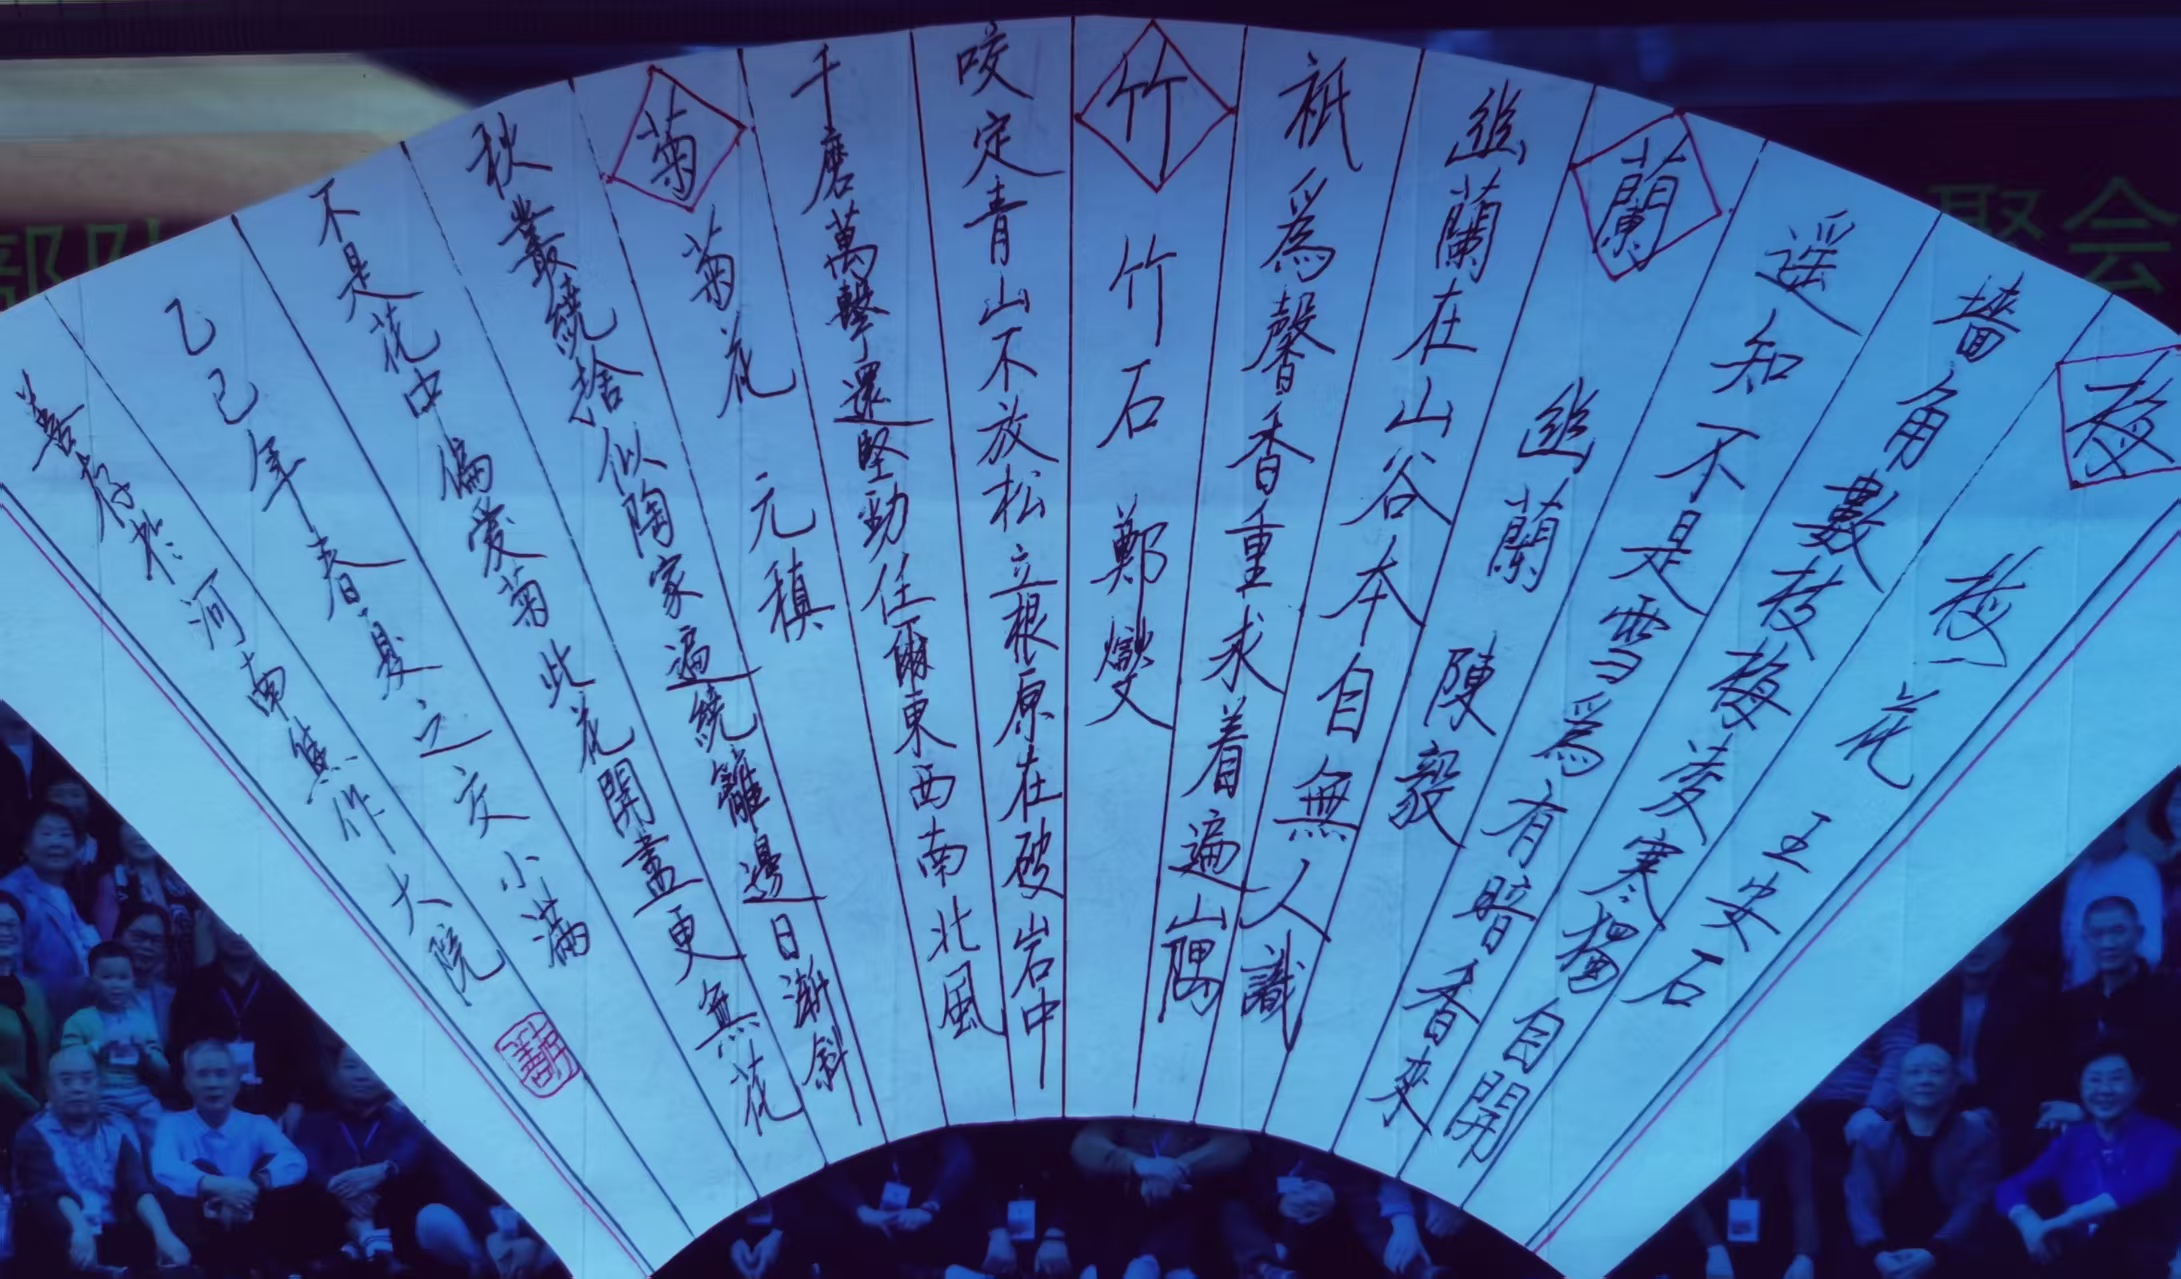 梅
梅花 王安石
墻角數枝梅凌寒獨自開
遥知不是雪爲有暗香來
蘭
幽蘭 陳毅
幽蘭在山谷本自無人識
祇爲馨香重求着遍山隅
竹
竹石 鄭燮
咬定青山不放松立根原在破岩中
千磨萬擊還堅勁任爾東西南北風
菊
菊花 元稹
秋叢繞捨似陶家遍繞籬邊日漸斜
不是花中偏愛菊此花開盡更無花
乙巳年春夏之交小滿
善存於河南焦作大院
聚会
部队